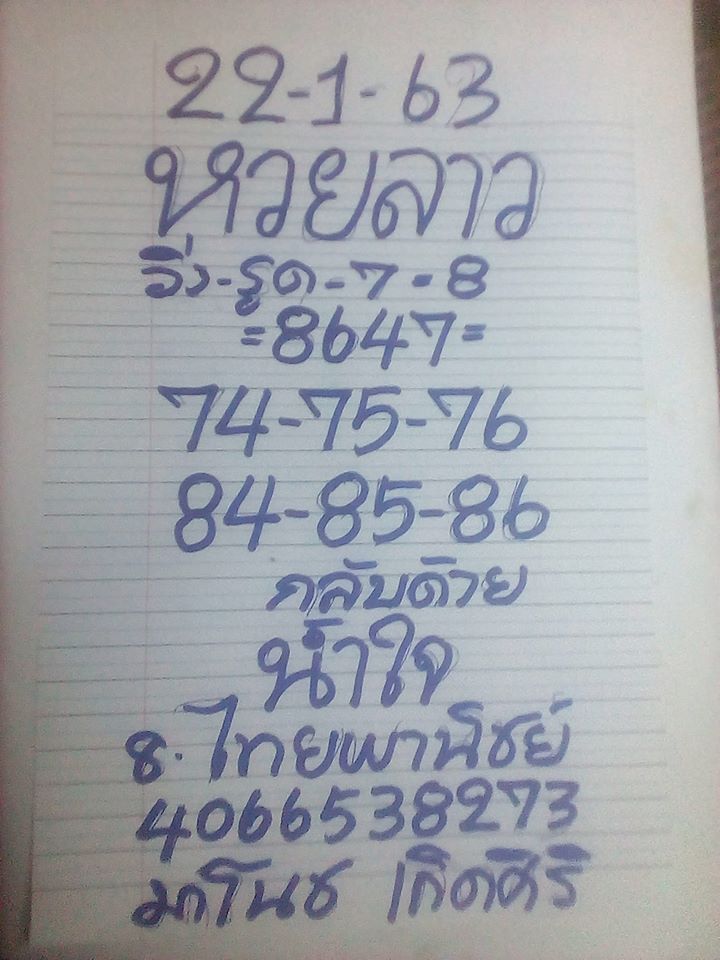 22-1-63
หวยลาว
วิ่ง-รูด-7-8
=8647=
74-75-76
84-85-86
กลับด้วย
น้ำใจ
8.ไทยพานิชย์
4066538273
มาโนช เกิดศิริ